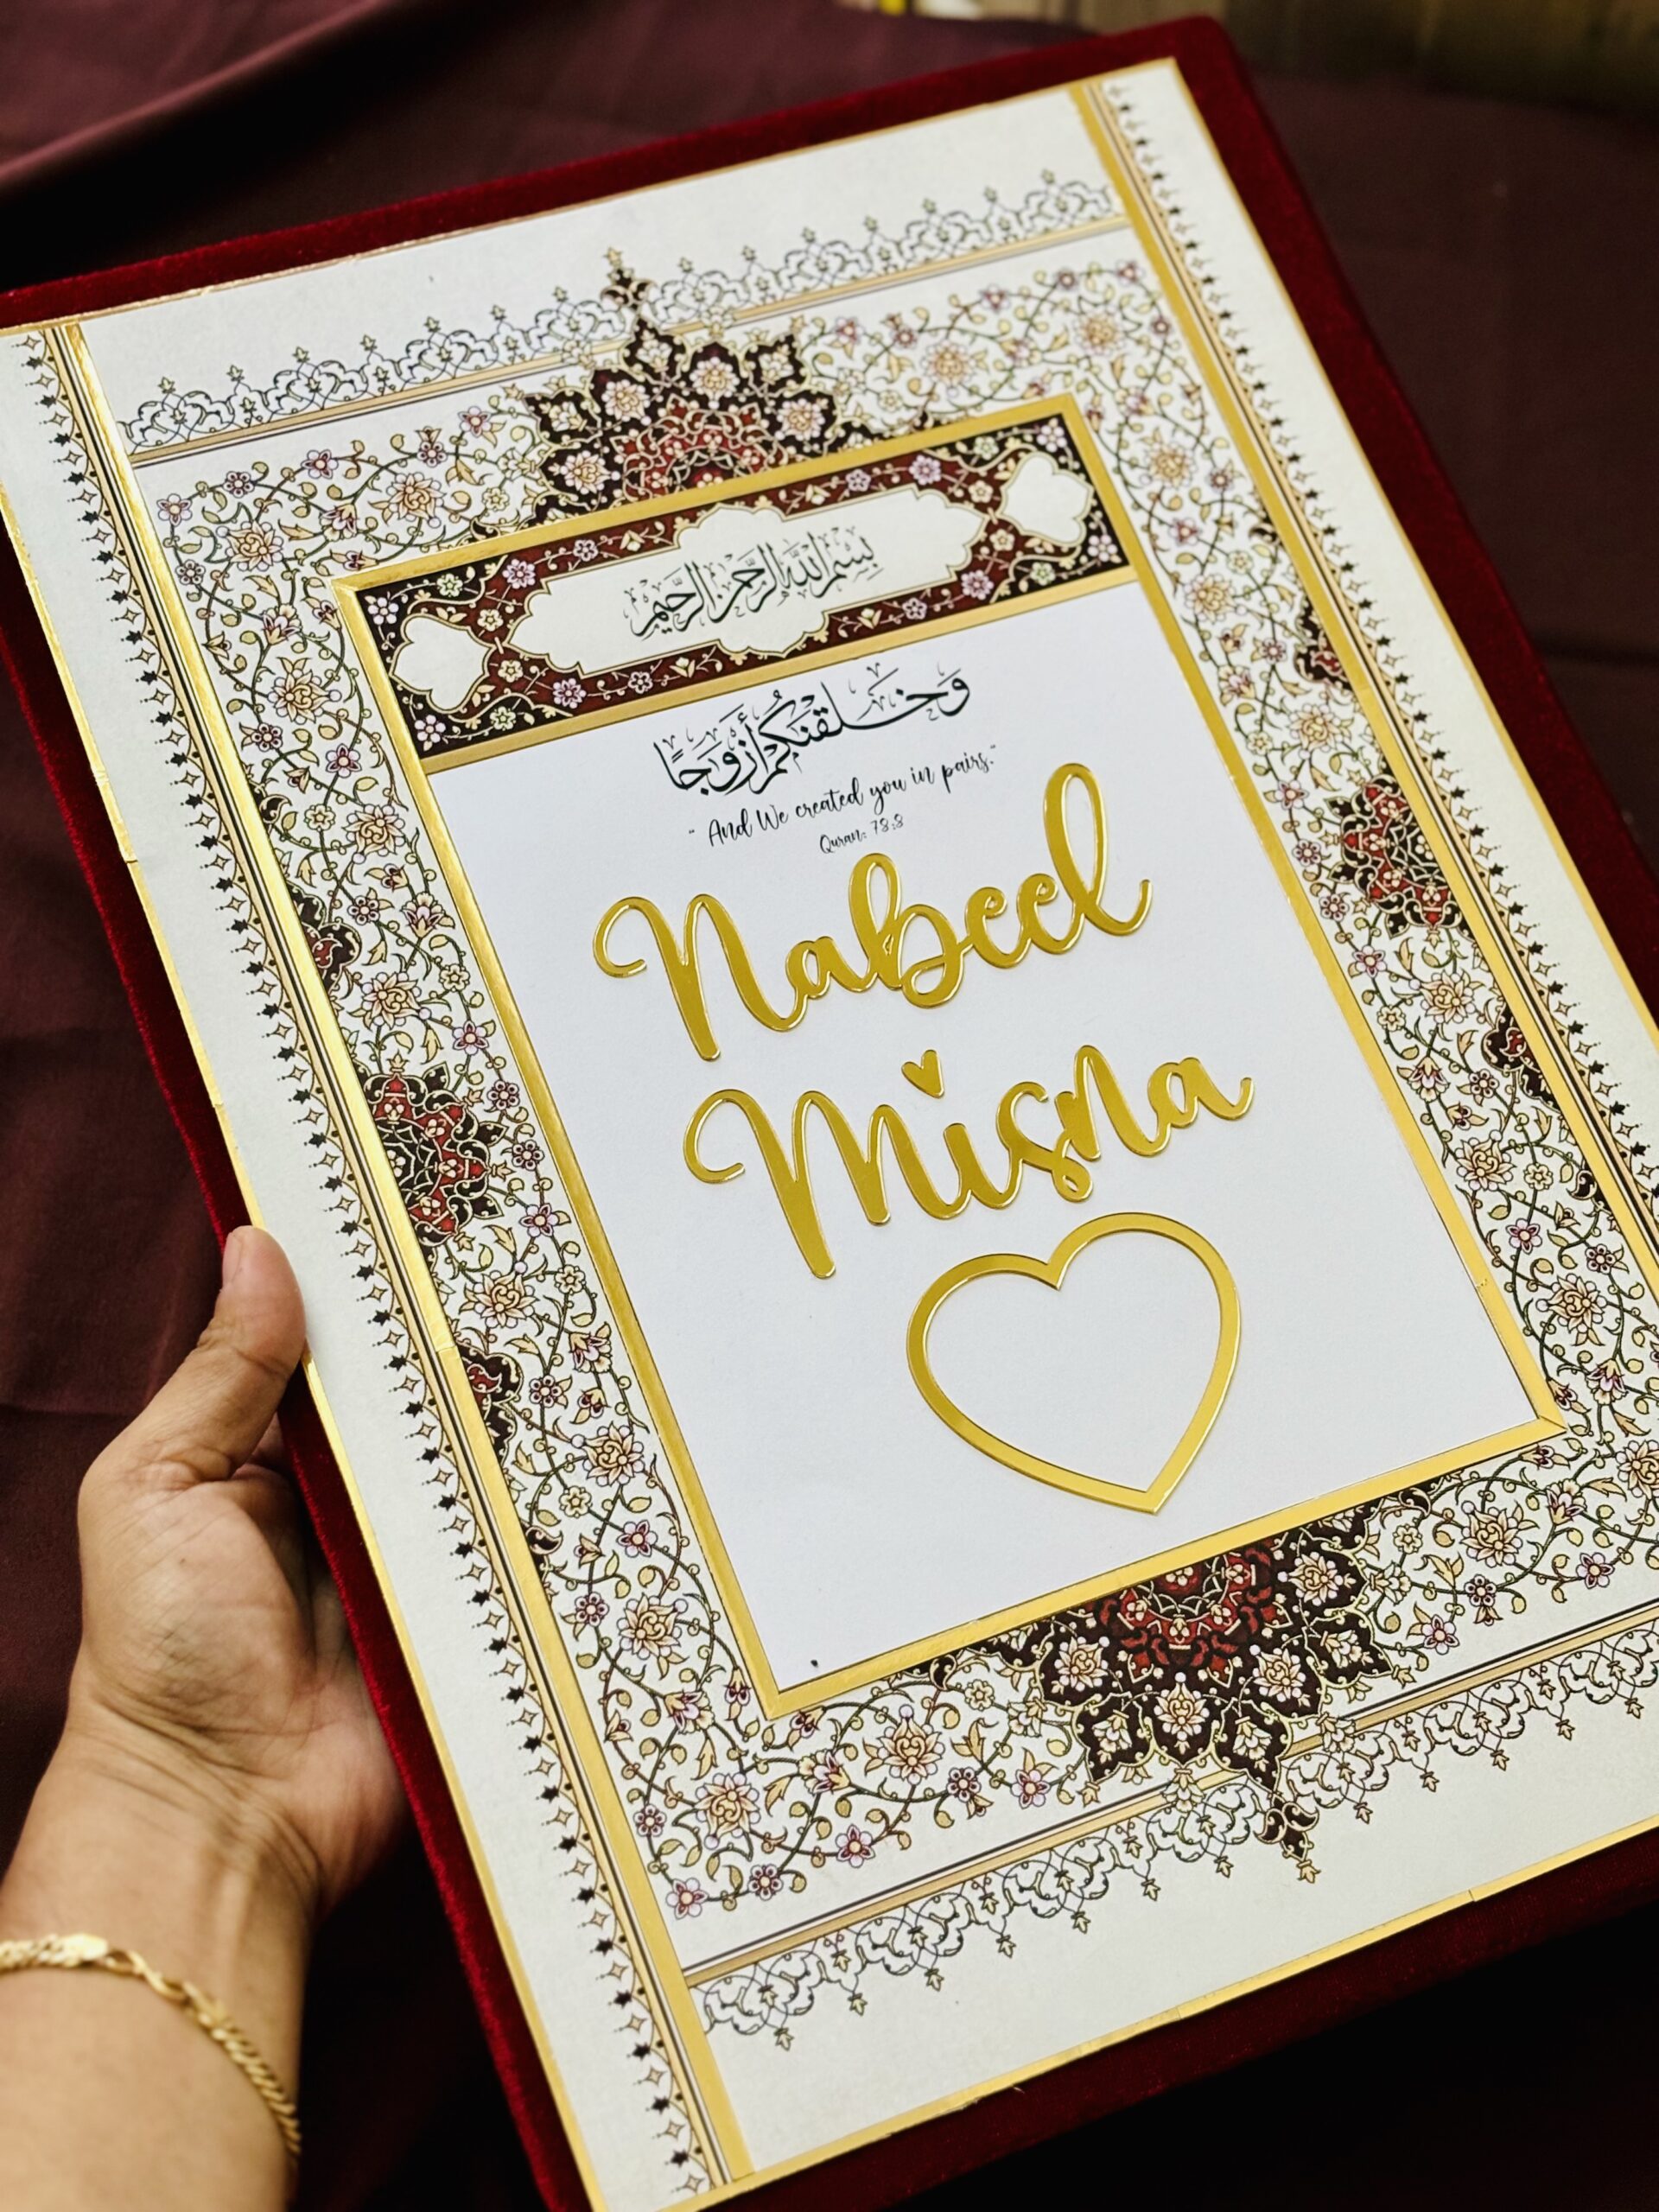 بِسْمِ اللَّهِ الرَّحْمَنِ الرَّحِيمِ
وَخَلَقْنَكُمْ أَزْوَجًا
"And We created you in pairs."
Quran: 78:8
Nabeel
Misna